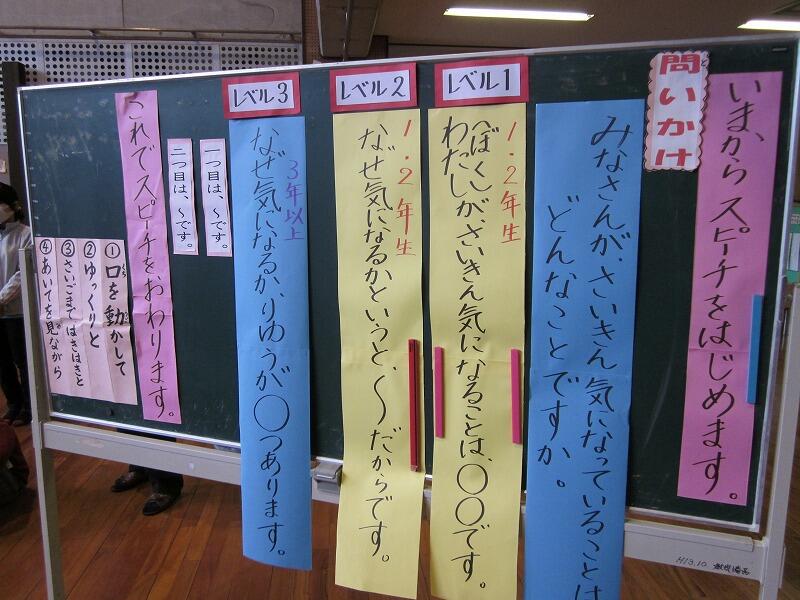 いまから スピーチをはじめます。
問いかけ
みなさんが、さいきん 気になっていることは
どんなことですか。
レベル1
1.2年生
ぼく
わたしが、さいきん気になることは、〇〇です。
レベル2
1.2年生
なぜ気になるかというと、〜だからです。
レベル3
3年以上
なぜ気になるか、りゆうが〇つあります。
一つ目は、〜です。
二つ目は、〜です。
これでスピーチをおわります。
①口を動かして
②ゆっくりと
③さいごまではきはきと
④あいてを見ながら
H13.10